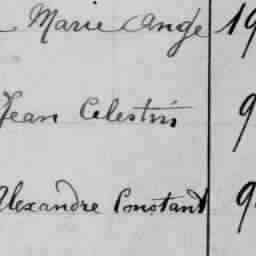 Marie Ange 19
Jean Celestin 9
Alexandre Constant 9